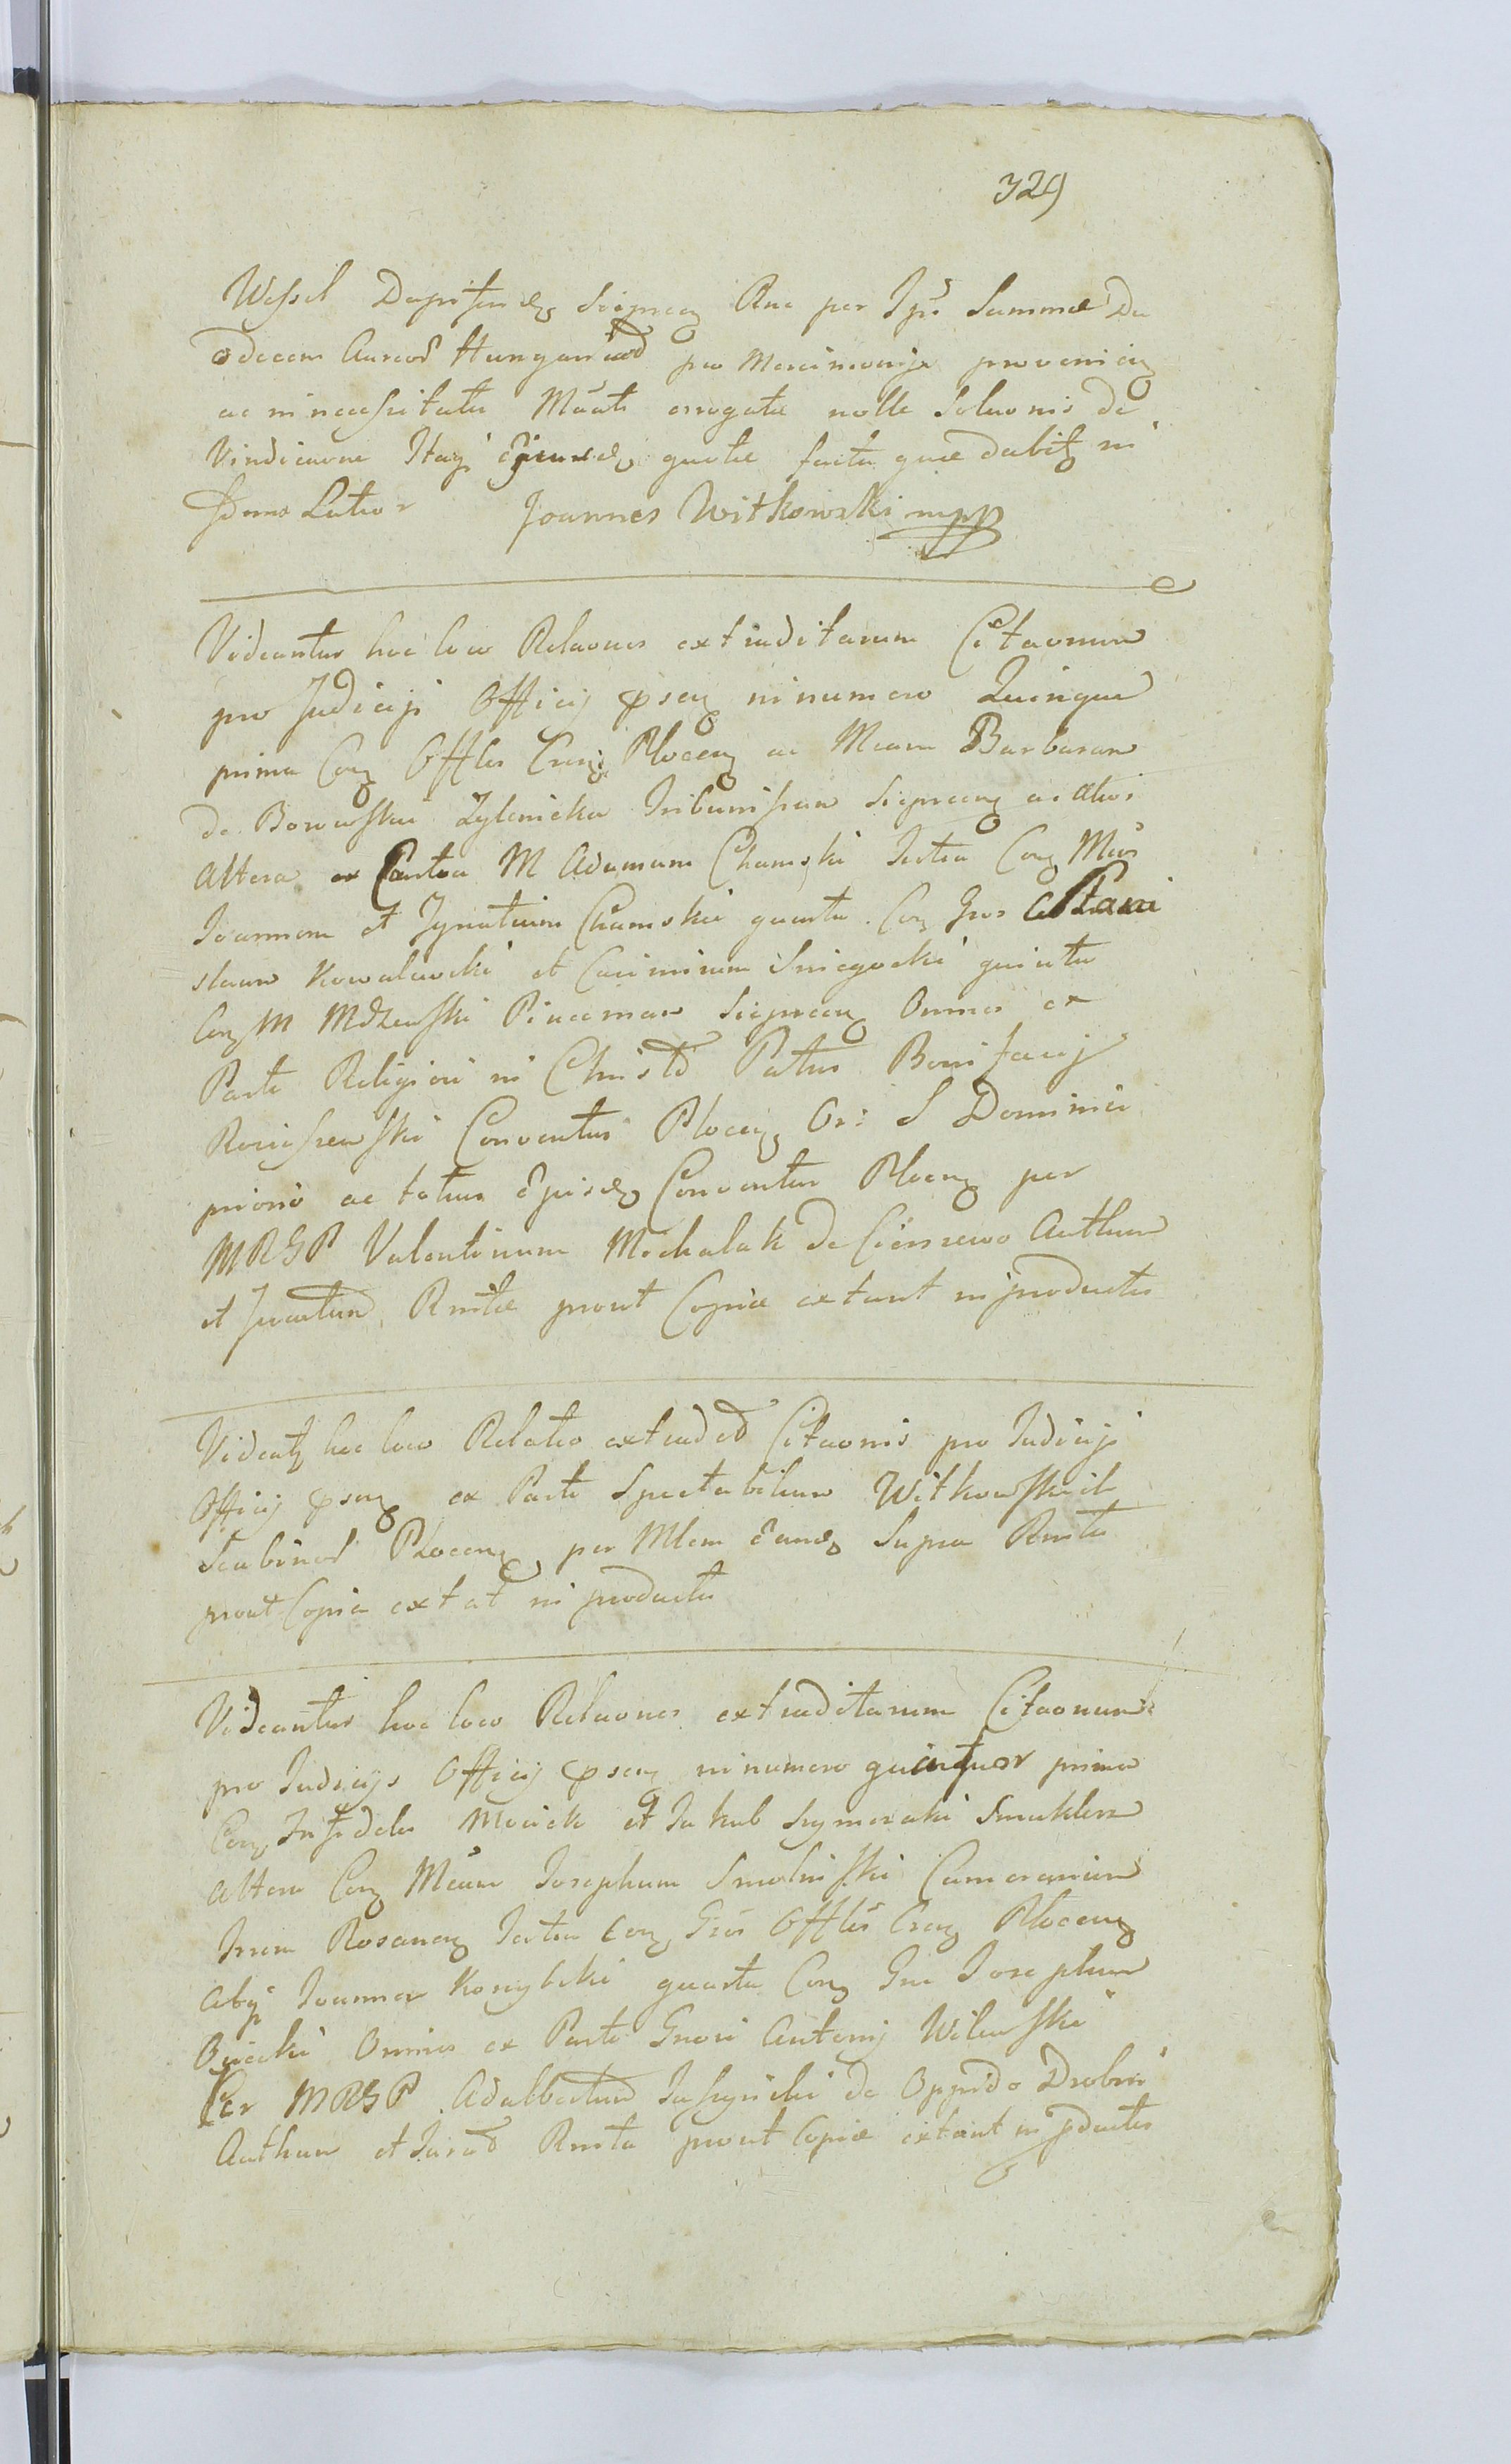 329
Wessel Dapiferidem Sierpcen Rne per Ips Summæ Du
odecem Aureor Hungaricod pro Mercimonijs provenien
ac in necessitatu Muati errogatæ nolle Soluonis de
Vindicaone Itaq quotæ facta quæ dabit in
Termo Latior Joannes Witkowski mpp
Videantur hoc loco Relaones extraditarum Citaonum
pro Judicijs Officij psen in numero Quinque
prima Con Offles Cren Plocen ac Mcam Barbaram
de Borewskie Zylenicka Tribunissam Sierpcen ac alios
Altera ex Contra M Adamum Chamski Tertia Con Mcos
Joannem et Ignatium Chamskie quarta Con Gnos Stani
slaum Kowalewski et Casimirum Sniegocki quinta
Con M Mdzewski Pincernam Sierpcen Omnes ex
Parte Religiosi in Christo Patris Bonifacij
Conventus Plocen Or: S Dominici
prioris ac totius Ejusdem Conventus Plocen per
MRGP Valentinum Michalak de Cierszewo Authum
et Juratum Rnitæ prout Copiæ extant in productis
Videatur hoc loco Relatio extradit Citaonis pro Judicijs
Officij psen ex Parte Spectabilium Witkowskich
Scabinor Plocen per Mlem Eund Supra Rnita
prout Copia extat in productis
Videantur hoc loco Relaones extraditarum Citaonum
pro Judicijs Officij psen in numero quatuor prima
Con Infideles Mosick et Jakub Szymoraki Smuklerz
altera Con Mcum Josephum Smolinski Camerarium
Trrem Rosanen Tertia Con Gnos Offles Cren Plocen
alijs Joannes Konybski quarta Con Gnu Josephum
Osiecki Omnes ex Parte Gnosi Antonij Wilewski
Per MRGP Adalbertum de Oppido Drobni
Authum et Jurat Rnita prout Copiæ extant in pductis